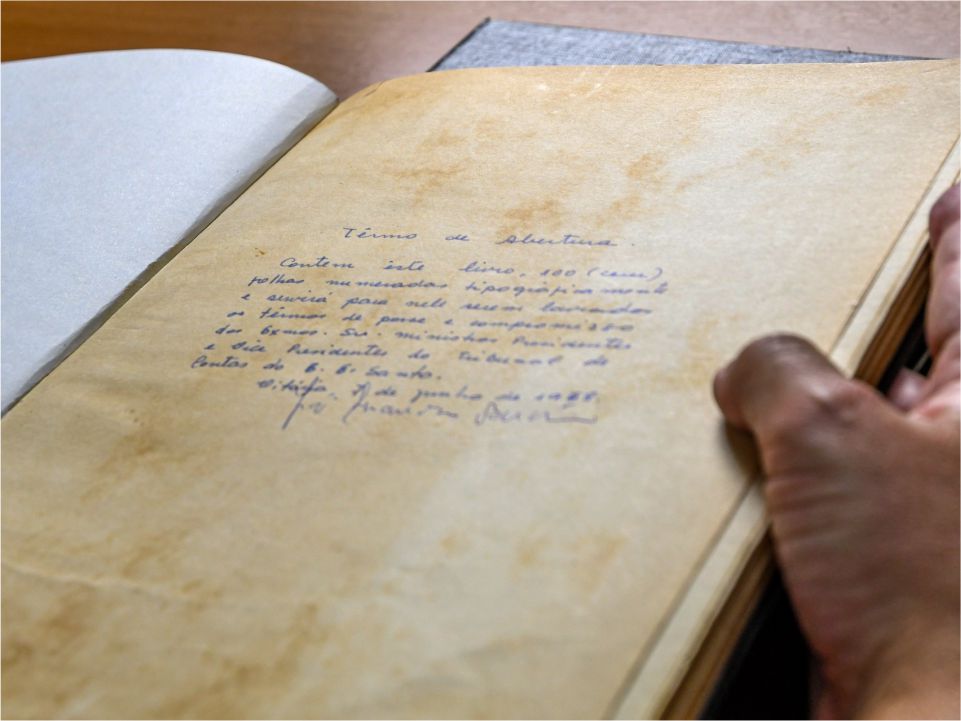 Têrmo de Abertura.
Contem êste livro, 100 (cem)
folhas numeradas tipográficamente
e servirá para nele serem lavrados
os têrmos de posse e compromisso
dos Exmos. Sr. ministros Presidentes
e Vice Presidentes do Tribunal de
Contas do E. E. Santo.
Vitória, de junho de